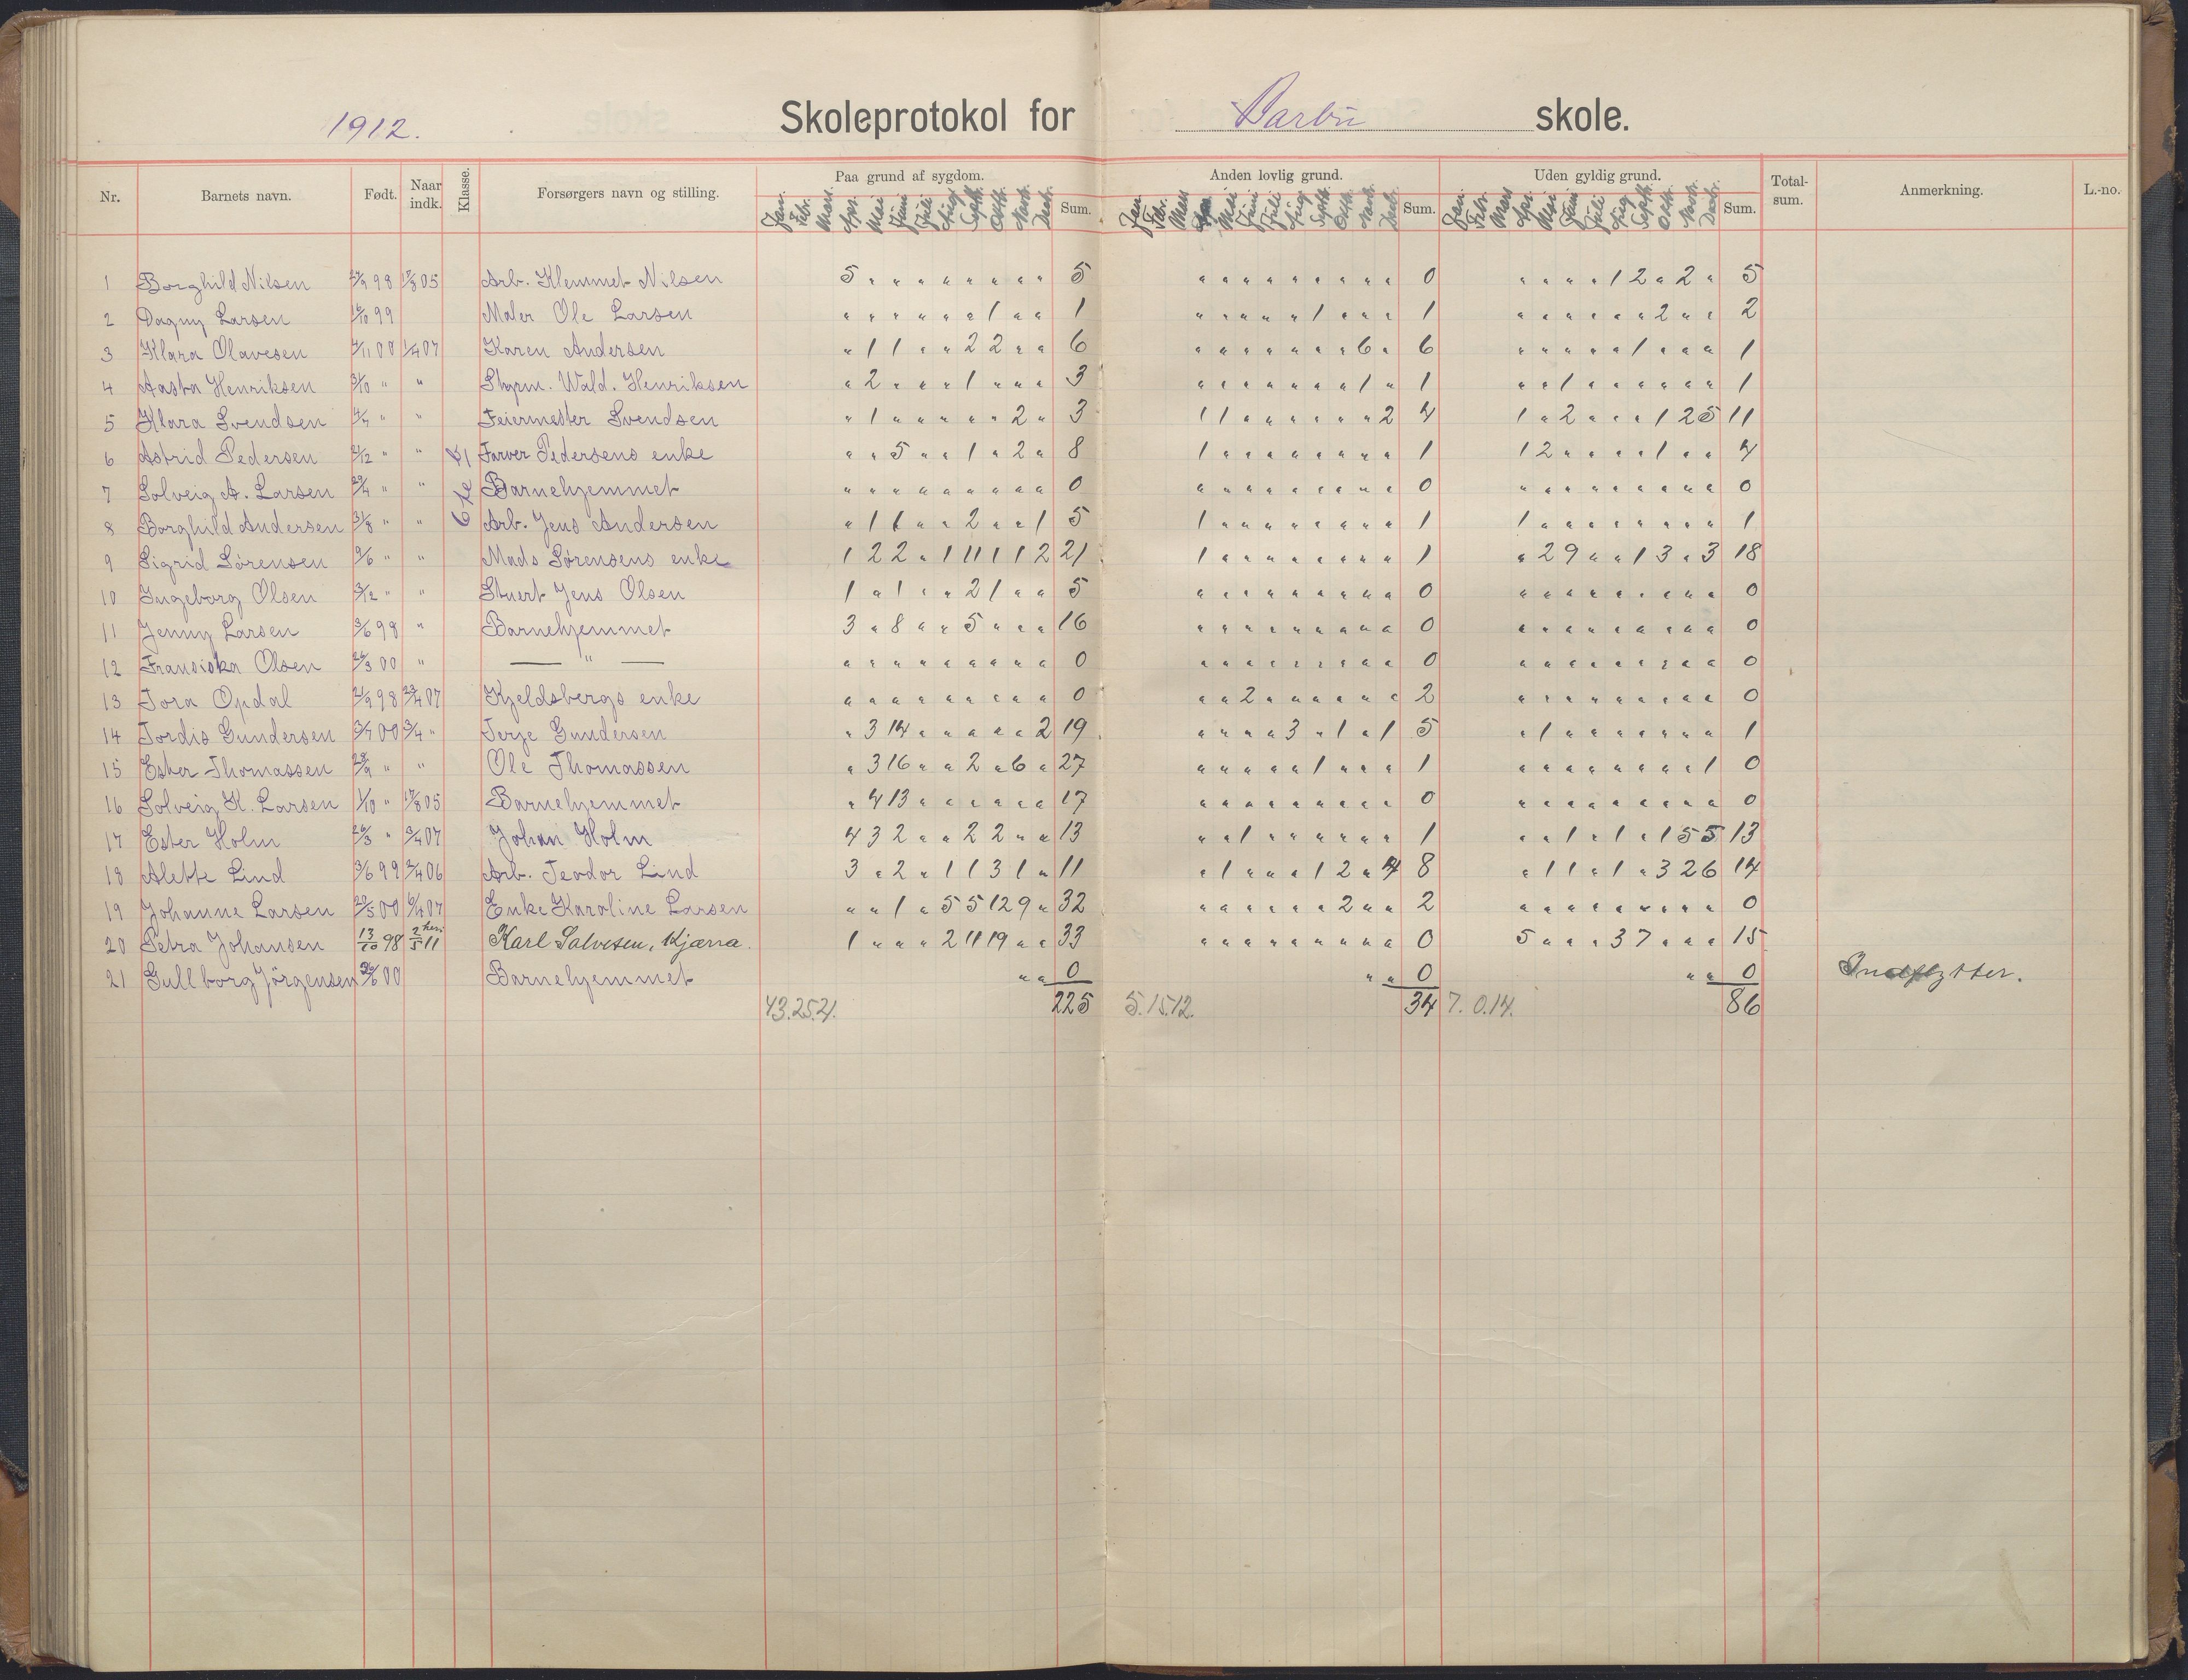 1912. Skoleprotokol for Barbu skole.
Nr. Barnets navn. Født. Naar indk. Klasse. Forsørgers navn og stilling. Paa grund af sygdom. Anden lovlig grund. Uden gyldig grund. Total-sum. Anmerkning. L.-no.
Jan. Febr. Mars. Apr. Mai Juni Juli Aug. Septb. Oktb. Novb. Decb. Sum. Jan. Febr. Mars Apr. Mai Juni Juli Aug. Septb. Oktb. Novb. Decb. Sum. Jan. Febr. Mars Apr. Mai Juni Juli Aug. Septb. Oktb. Novb. Decb. Sum.
1 Borghild Nilsen 98 05 Arb. Klemmet Nilsen 5 " " " " " " " " 5 " " " " " " " " " 0 " " " " 1 2 " 2 " 5
2 Dagny Larsen 99 Maler Ole Larsen " " " " " " 1 " " 1 " " " " " 1 " " " 1 " " " " " " 2 " " 2
3 Klara Olavesen 00 1/4 07 Karen Andersen " 1 1 " " 2 2 " " 6 " " " " " " " 6 " 6 " " " " " 1 " " " 1
4 Aasta Henriksen 3/10 " " Styrm. Wald. Henriksen " 2 " " " 1 " " " 3 " " " " " " " 1 " 1 " " 1 " " " " " " 1
5 Klara Svendsen " " Feiermester Svendsen " 1 " " " " " 2 " 3 1 1 " " " " " " 2 4 1 " 2 " " " 1 2 5 11
6 Astrid Pedersen 2/12 " " Farver Pedersens enke " " 5 " " 1 " 2 " 8 1 " " " " " " " " 1 1 2 " " " " 1 " " 4
7 Solveig A. Larsen " " Barnehjemmet " " " " " " " " " 0 " " " " " " " " " 0 " " " " " " " " " 0
8 Borghild Andersen 31/8 " " Arb. Jens Andersen " 1 1 " " 2 " " 1 5 1 " " " " " " " " 1 1 " " " " " " " " 1
9 Sigrid Sørensen " " Mads Sørensens enke 1 2 2 " 1 11 1 1 2 21 1 " " " " " " " " 1 " 2 9 " " 1 3 " 3 18
10 Ingeborg Olsen " " Stuert Jens Olsen 1 " 1 " " 2 1 " " 5 " " " " " " " " " 0 " " " " " " " " " 0
11 Jenny Larsen 98 " Barnehjemmet 3 " 8 " " 5 " " " 16 " " " " " " " " " 0 " " " " " " " " " 0
12 Fransiska Olsen 00 " — " — " " " " " " " " " 0 " " " " " " " " " 0 " " " " " " " " " 0
13 Tora Opdal 98 07 Kjeldsbergs enke " " " " " " " " " 0 " " 2 " " " " " " 2 " " " " " " " " " 0
14 Tordis Gundersen 00 3/4 " Terje Gundersen " 3 14 " " " " " 2 19 " " " " 3 " 1 " 1 5 " 1 " " " " " " " 1
15 Ester Thomassen " " Ole Thomassen " 3 16 " " 2 " 6 " 27 " " " " " 1 " " " 1 " " " " " " " " 1 0
16 Solveig K. Larsen 1/10 " 05 Barnehjemmet " 4 13 " " " " " " 17 " " " " " " " " " 0 " " " " " " " " " 0
17 Ester Holm " 07 Johan Holm 4 3 2 " " 2 2 " " 13 " " 1 " " " " " " 1 " " 1 " 1 " 1 5 5 13
18 Alette Lind 99 06 Arb. Teodor Lind 3 " 2 " 1 1 3 1 " 11 " 1 " " " 1 2 " 4 8 " 1 1 " 1 " 3 2 6 14
19 Johanne Larsen 00 07 Enke Karoline Larsen " " 1 " 5 5 12 9 " 32 " " " " " " 2 " " 2 " " " " " " " " " 0
20 Petra Johansen 13/10 98 2/5 11 Karl Salvesen, Kjærra. 1 " " " 2 11 19 " " 33 " " " " " " " " " 0 5 " " " 3 7 " " " 15
21 Gullborg Jørgensen 00 Barnehjemmet " " 0 " " 0 " " 0 Indflytter.
43.25.21. 225 5.15.12. 34 7.0.14. 86